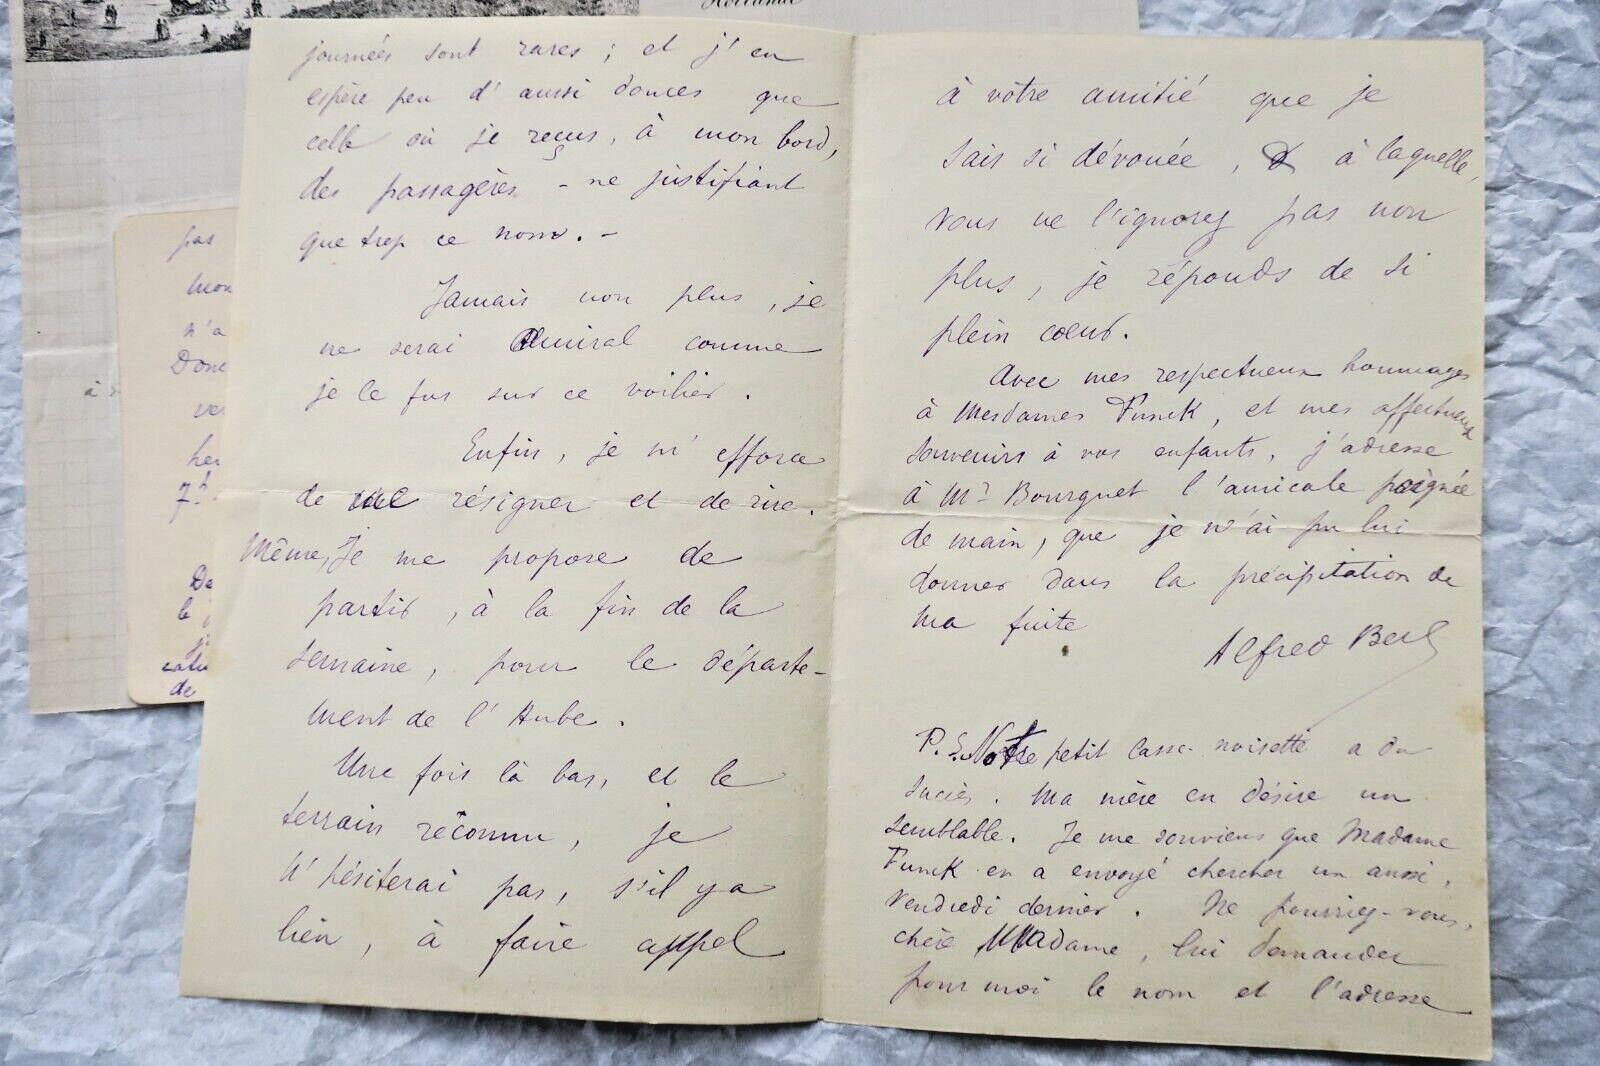 Hollande
journées sont rares ; et j'en
espère peu d'aussi douces que
celle où je reçus, à mon bord,
des passagères - ne justifiant
que trop ce nom. -
Jamais non plus, je
ne serai Amiral comme
je le fus sur ce voilier.
Enfin, je m'efforce
de me résigner et de rire.
Même, je me propose de
partir, à la fin de la
semaine, pour le départe-
ment de l'Aube.
Une fois là bas, et le
terrain reconnu, je
n'hésiterai pas, s'il y a
lieu, à faire appel
à vôtre amitié que je
sais si dévouée, & à laquelle,
vous ne l'ignorez pas non
plus, je réponds de si
plein coeur.
Avec mes respectueux hommages
à Mesdames Funck, et mes affectueux
souvenirs à vos enfants, j'adresse
à Mr Bourguet l'amicale poignée
de main, que je n'ai pu lui
donner dans la précipitation de
ma fuite
Alfred Berl
P.S. Notre petit casse-noisette a du
succès. Ma mère en désire un
semblable. Je me souviens que Madame
Funck en a envoyé chercher un aussi,
vendredi dernier. Ne pourriez-vous,
chère Madame, lui demander
pour moi le nom et l'adresse
pas
mon
n'a
Donc
ver
her
7h.
De
le
de